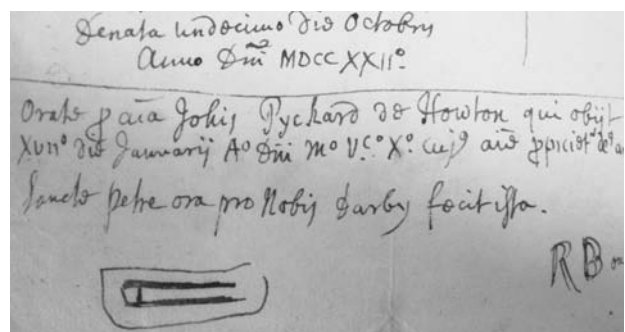 Denata undecimo die Octobris
Anno Dni MDCCXXIIo.
Orate p aia Johis Pychard de Howton qui obijt
XVIIo die Januarij Ao Dni Mo Vc.o Xo. cuj9 aie ppiciet' de9
Sancte petre ora pro Nobis Darby fecit ista.
RB